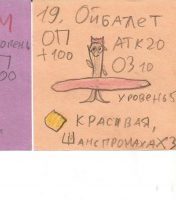 19. ОЙБАЛЕТ
ОП АТК 20
+100 ОЗ 10
УРОВЕНЬ 5
КРАСИВАЯ,
ШАНСПРОМАХАХ3
М
РОВЕНЬ
П
00